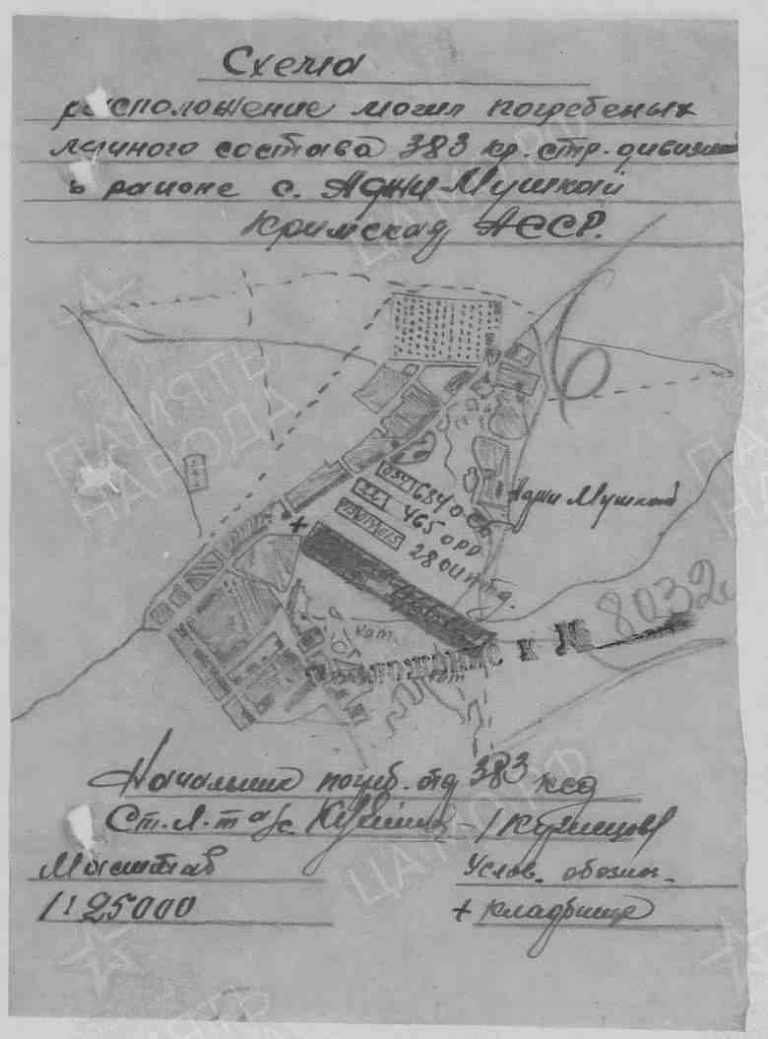 Схема
расположение могил погребеных
личного состава 383 кр. стр. дивизии
в районе с. Аджи-Мушкай
Кримская АССР.
6
684 О
465 орр
28
Аджи Мушкай
кат.
Приложение к № 8032
кат
Начальник погреб. отд 383 ксд
Ст. Л-т а/с /Кузнецов/
Масштаб
1:25000
Услов. обозн.
+ кладбище
ПАМЯТЬ
НАРОДА
ЦАМО РФ